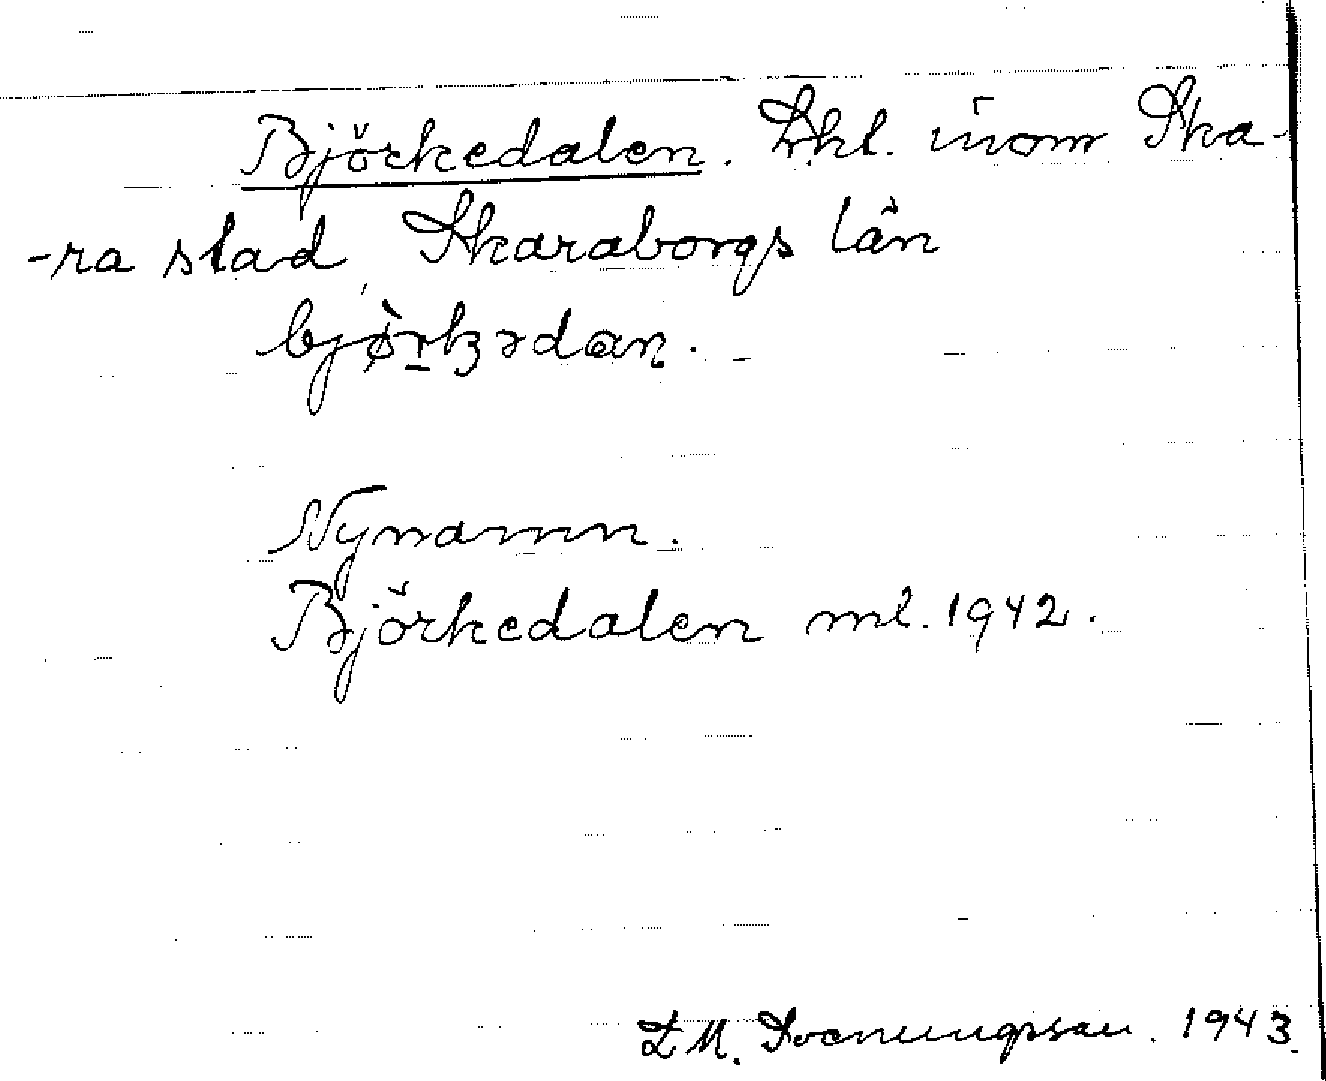 Björkedalen. Lkl. inom Ska-
-ra stad, Skaraborgs län
bjø̀rkədan.
Nynamn.
Björkedalen ml. 1942.
L M. Svenungsson. 1943.